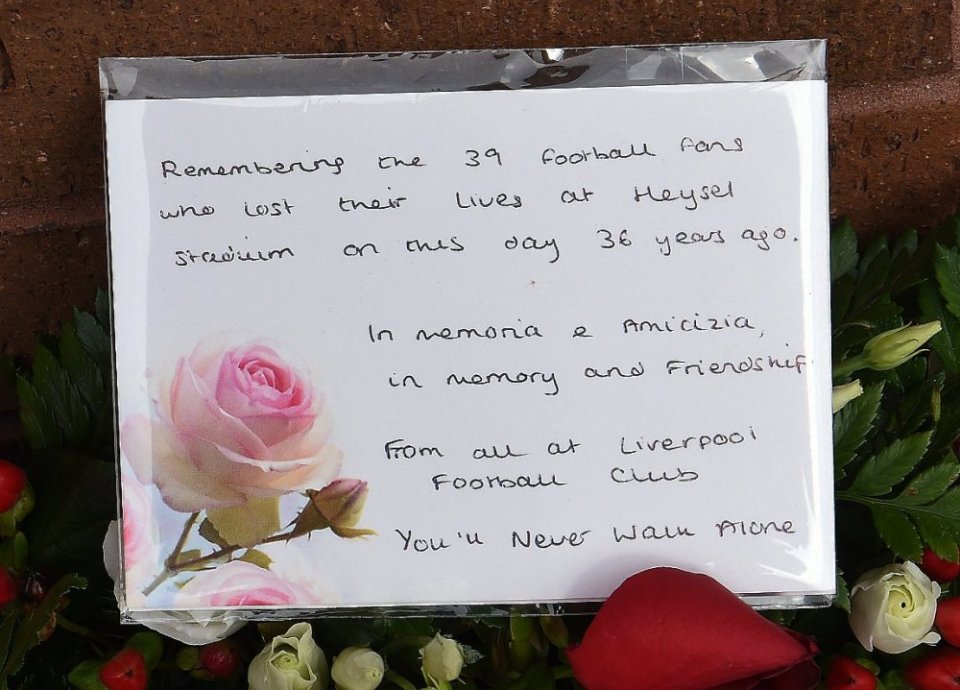 Remembering the 39 football fans
who lost their lives at Heysel
Stadium on this day 36 years ago.
In memoria e Amicizia,
in memory and Friendship
From all at Liverpool
Football Club
You'll Never Walk Alone